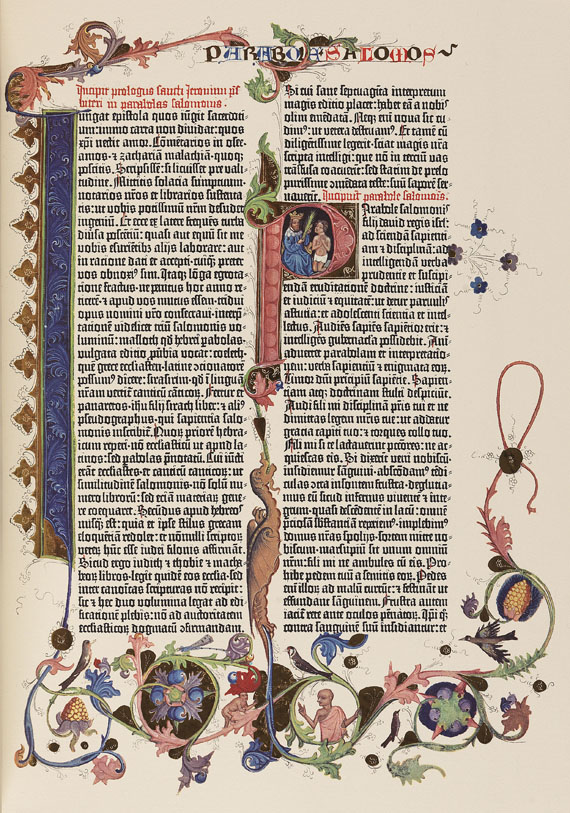 PARABOLE SALOMOS
Incipit prologus sancti Jeronimi p̄s
biteri in parabolas salomonis.
Iungat epistola quos iūgit sacerdoti-
um: immo carta non dividat: quos
xp̄i nectit amor. Cōmētarios in osee-
amos ⁊ zachariam malachiā-quoqꝫ
poscitis. Scripsissē: si licuisset pre vali-
tudine. Mittitis solacia sumptuum-
notarios nr̄os et librarios sustenta-
tis: ut vobis potissimū nr̄m desudet
ingeniū. Et ecce ex latere frequēs turba
diūsa poscentiū: quasi aut equū sit me
vobis esurietībȝ alijs laborare: aut
in ratione dati et accepti-cuiqꝫ preter
vos obnoxiꝰ sim. Itaqꝫ lōga egrota
tione fractus-ne penitus hoc anno re-
ticerē-⁊ apud vos mutus essem-tridui
opus nomini vr̄o consecraui-interp̄
tationē videlicet triū salomonis vo-
luminū: masloth qd̄ hebrei pabolas-
vulgata editio ꝓuerbia vocat: coeleth-
quē grece ecclesiasten-latine ꝯcionatorē
possumꝰ dicere: sirasirim-qd̄ ī linguā
nr̄am vertiť canticū canticoꝝ. Fertur et
panaretos-ihū filij sirach liber: ⁊ aliꝰ
pseudographus-qui sapientia salo-
monis inscribiť. Quoꝝ priorē hebra-
icum repperi-nō ecclesiasticū ut apud la-
tinos: sed pabolas p̄notatū. Cui iūcti
erāt ecclesiastes-et canticū canticoꝝ: ut
similitudinē salomonis-nō solū nu-
mero librorū: sed etiā materiaꝝ gene-
re coequaret. Secūdus apud hebreos
nusqͣ̄ est: quia et ipse stilus grecam
eloquētiā redolet: et nōnulli scriptoꝝ
veteꝝ hūc esse iudei filonis affirmāt.
Sicud ergo iudith ⁊ thobie ⁊ macha-
beoꝝ libros-legit quidē eos ecclesia-sed
inter canonicas scripturas nō recipit:
sic ⁊ hec duo volumina legat ad edi-
ficationē plebis: nō ad auctoritatem
ecclesiasticoꝝ dogmatū ɔfirmandam.
Si cui sane septuagīta interpretum
magis editio placet: habet eā a nobis
olim emēdatā. Neqꝫ eni noua sic cu-
dimꝰ: ut vetera destruamꝰ. Et tamē cū
diligētissime legerit-sciat magis nr̄a
scripta intelligi: que nō in terciū vas
trāsfusa coacuerīt: sed statim de prelo
purissime ɔmēdata teste: suū saporē ser-
uauerīt. Incipiunt parabole salomōis
Parabole salomonis
filij dauid regis isrł:
ad sciendā sapienti-
am ⁊ disciplinā: ad
intelligendā verba
prudentie et suscipi-
endā eruditationē doctrine: iusticiā
et iudiciū ⁊ equitatē: ut detur paruulis
astutia: et adolescenti scientia et intel-
lectus. Audiēs sapiēs sapiētior erit: ⁊
intelligēs gubernacła possidebit. Ani-
aduertet parabolam et interpretatio-
nem: verba sapientiū ⁊ enigmata eoꝝ.
Timor dn̄i principiū sapiētie. Sapien-
tiam atqꝫ doctrinam stulti despiciūt.
Audi fili mi disciplinā pr̄is tui et ne
dimittas legem mr̄is tue: ut addatur
gratia capiti tuo: ⁊ torques collo tuo.
Fili mi si te lactauerīt pctōres: ne ac-
quiescas eis. Si dixerīt veni nobiscū-
insidiemur sāguini-abscōdamꝰ tēdi-
culas ɔtra insontem frustra-deglutia-
mus eū sicud infernus viuentē ⁊ inte-
grum-quasi descēdentē in lacū: omnē
p̄ciosā substātiā reperiemꝰ-implebimꝰ
domus nr̄as spolijs-sortem mitte no-
biscum-marsupiū sit unum omniū
nr̄m: fili mi ne ambules cū eis. Pro-
hibe pedem tuū a semitis eoꝝ. Pedes
eni illoꝝ ad malū currūt: ⁊ festināt ut
effundant sanguinem. Frustra autem
iaciť rete ante oculos pēnatoꝝ. Ip̄i qꝫ
contra sanguinē suū insidiantur: et